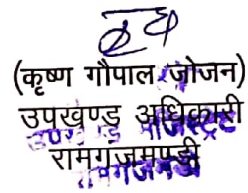 (कृष्ण गौपाल जोजन)
उपखण्ड अधिकारी
रामगंजमण्डी